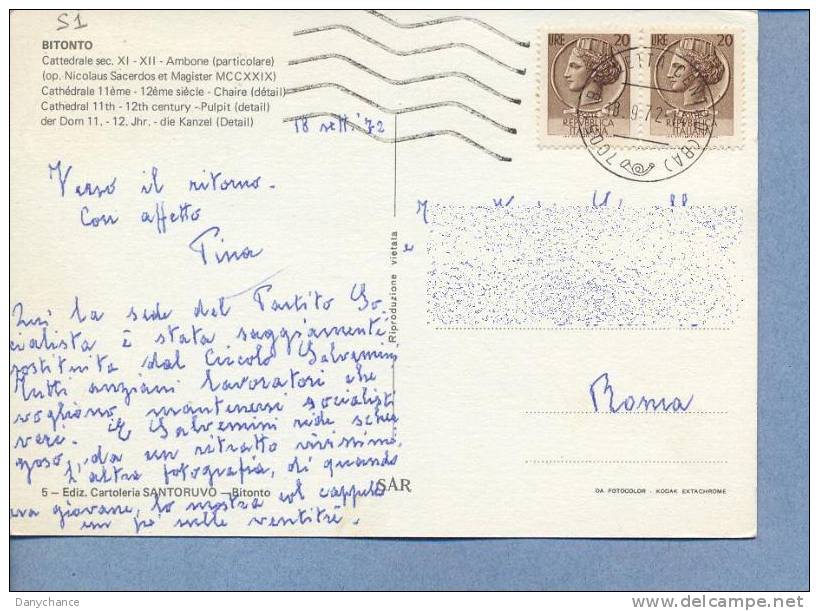 S1
BITONTO
Cattedrale sec. XI - XII - Ambone (particolare)
(op. Nicolaus Sacerdos et Magister MCCXXIX)
Cathédrale 11ème - 12ème siècle - Chaire (détail)
Cathedral 11th - 12th century - Pulpit (detail)
der Dom 11. - 12. Jhr. - die Kanzel (Detail)
LIRE 20
LIRE 20
REPUBBLICA ITALIANA
REPUBBLICA ITALIANA
18.9.72
(BA)
18 sett. 72
Verso il ritorno.
Con affetto
Pina
Qui la sede del Partito So
cialista è stata saggiamente
sostituita dal Circolo Salvemini
Tutti anziani lavoratori che
vogliono mantenersi socialisti
veri. E Salvemini ride scher
zoso, da un ritratto vivissimo.
L'altra fotografia, di quando
era giovane, lo mostra col cappello
un po' sulle ventitré.
Riproduzione vietata
Roma
5 - Ediz. Cartoleria SANTORUVO - Bitonto
SAR
DA FOTOCOLOR - KODAK EXTACHROME
Danychance
http://www.delcampe.net